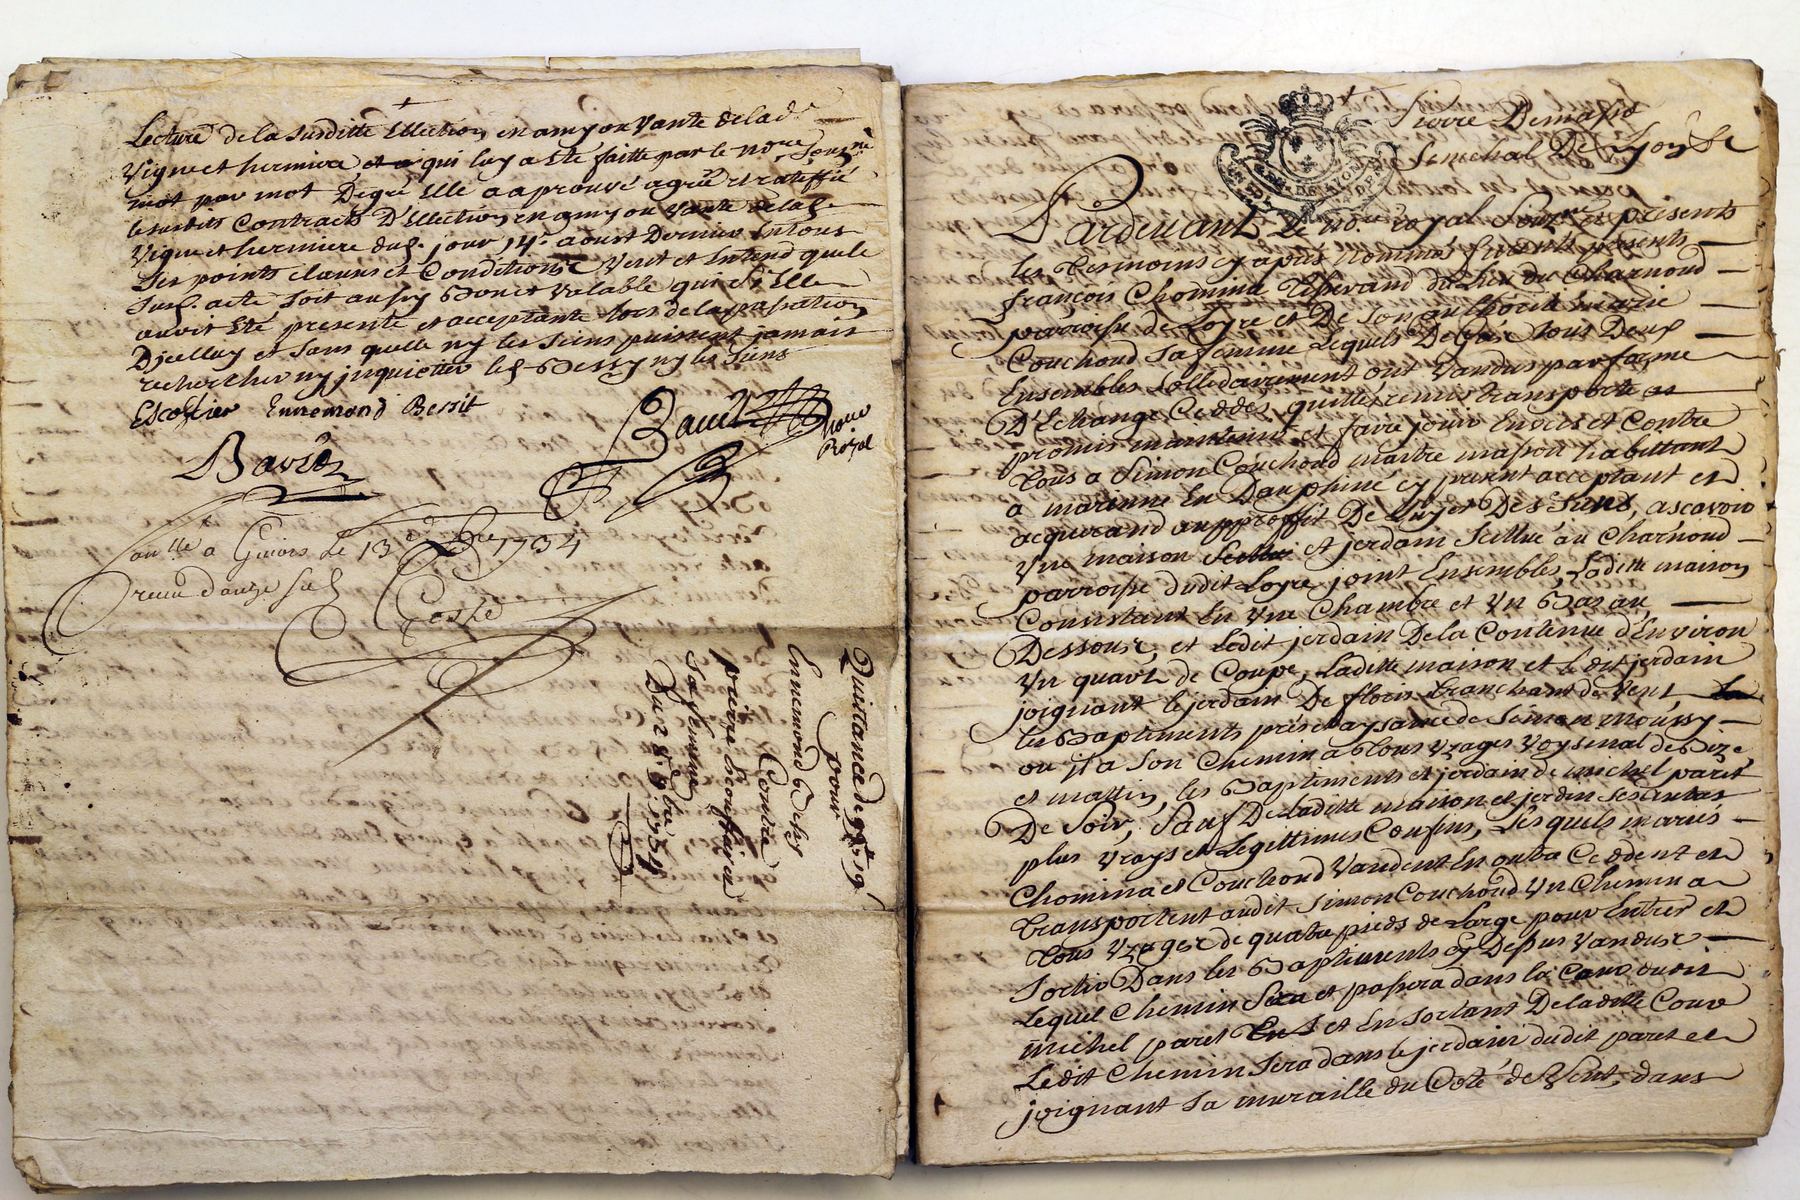 Lecture de la susditte Ellection en amy ou Vante de lad.
Vigne et hermiere et a qui luy a Eté faitte par le no.re Soussigné
mot par mot De gré Elle a aprouvé agréé et ratiffié
lesusdits Contracts D'Ellection en amy ou Vante delad.
Vigne et hermiere dud. jour 14e aoust Dernier En tous
Ses points clauses et Conditions Veut et Entend que le
Susd. acte Soit aussy Bon et Valable que si Elle
avoit Eté presente et acceptante lors de la passation
D'jcelluy et Sans quelle ny les Siens puissent jamais
rechercher ny jnquietter led. Bessy ny les Siens
Escoffier Ennemond Bessit
no.re
Royal
a Givors le 13e 1734
receu douze sols
Coste
Quittance de 99# 19s
pour
Ennemond Bessy
Contre
pierre
Sa femme
Du 28e 9bre 1734
Pierre Demasso
Senechal De Lyon &
Pardevant Le no.re royal Souz.né et presents
les tesmoins cy apres Nommés furents presents
françois Chomina Tisserand du Lieu du Charnond
parroisse de Loyre et De Son authorité marie
Couchoud Sa femme Lesquels De gré tous Deux
Ensembles Sollidairement ont Vandus par forme
D'Echange Ceddés quittés remis transportés et
promis maintenir et faire jouir Envers et Contre
tous a Simon Couchoud maitre masson habittant
a marenne En Dauphiné cy present acceptant et
acquerand au proffit De Luy et Des Siens, ascavoir
Une maison et jerdain Scittué au Charnond
parroisse dudit Loyre joint Ensembles, Laditte maison
Consistant En Une Chambre et Un Bas au
Dessous, et Ledit jerdain De la Contenue d'Environ
Un quart de Coupe, Laditte maison et Ledit jerdain
joignant le jerdain De floris tranchant de Vent
les Baptiments pres et aysance de Simon moussy
ou jl a Son Chemin a tous Vzages Voysinal de Bize
et mattin, les Baptiments et jerdain de michel paret
De Soir, Sauf De laditte maison et jerdin Ses autres
plus Vrays et Legittimes Confins, Lesquels mariés
Chomina et Couchoud Vandent En outre Ceddent et
transportent audit Simon Couchoud Un Chemin a
tous Vzages de quatre pieds de Large pour Entrer et
Sortir Dans les Baptiments cy Dessus Vandus
Lequel Chemin Sera et passera dans la Cour dudit
michel paret et En Sortant De laditte Cour
Ledit Chemin Sera dans le jerdain dudit paret et
joignant Sa muraille du Coté de Vent, dans